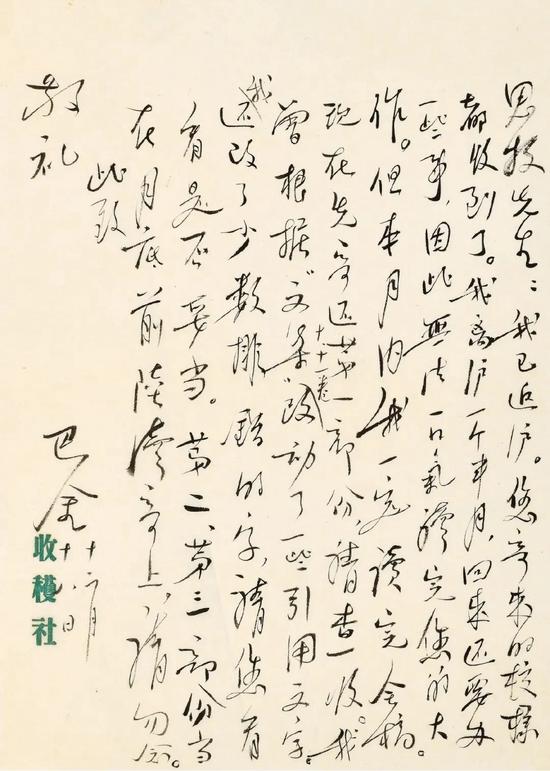 思牧先生：我已返沪。您寄来的校样
都收到了。我离沪一个半月，回来还要办
一些事，因此無法一口氣读完您的大
作。但本月内我一定读完全稿。
现在先寄还第一部份，请查收。我
曾根据“文集”十一卷改动了一些引用文字。
我还改了少数排错的字，请您看
看是否妥当。第二、第三部份当
在月底前陸續寄上，请勿念。
此致
敬礼
巴金
十二月
十八日
收穫社